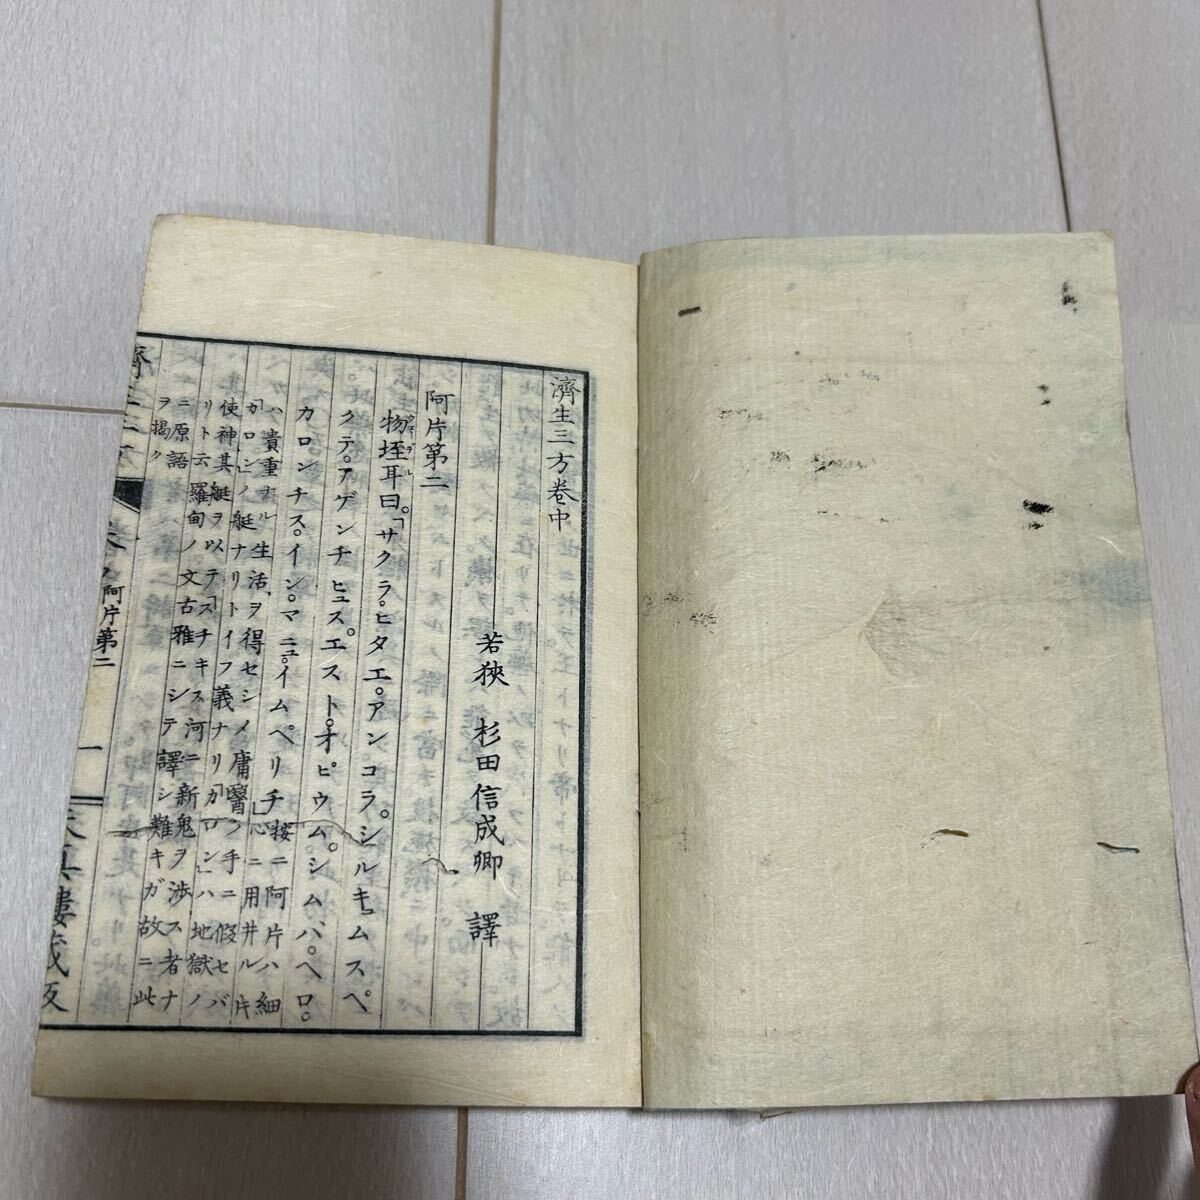 濟生三方卷中
若狹 杉田信成卿 譯
阿片第二
物垤耳曰。「サクラ。ヒタエ。アンコラ。シルキュムスペ
クテ。アゲンチビュス。エスト。オピウム。シムバ。ヘロ。
カロンチス。イン。マニュ。イムペリチ 按ニ阿片ハ細
心ニ用井ル片
ハ貴重ナル生活ヲ得セシメ庸醫ノ手ニ假セバ
「カロン」ノ艇ナリトイフ義ナリ「カロン」ハ地獄ノ
使神其艇ヲ以テ「スチキス」河ニ新鬼ヲ渉ス者ナ
リト云 羅甸ノ文古雅ニシテ譯シ難キガ故ニ此
ニ原語
ヲ揭ク
濟生三方
卷中 阿片第二
一
天眞樓藏版